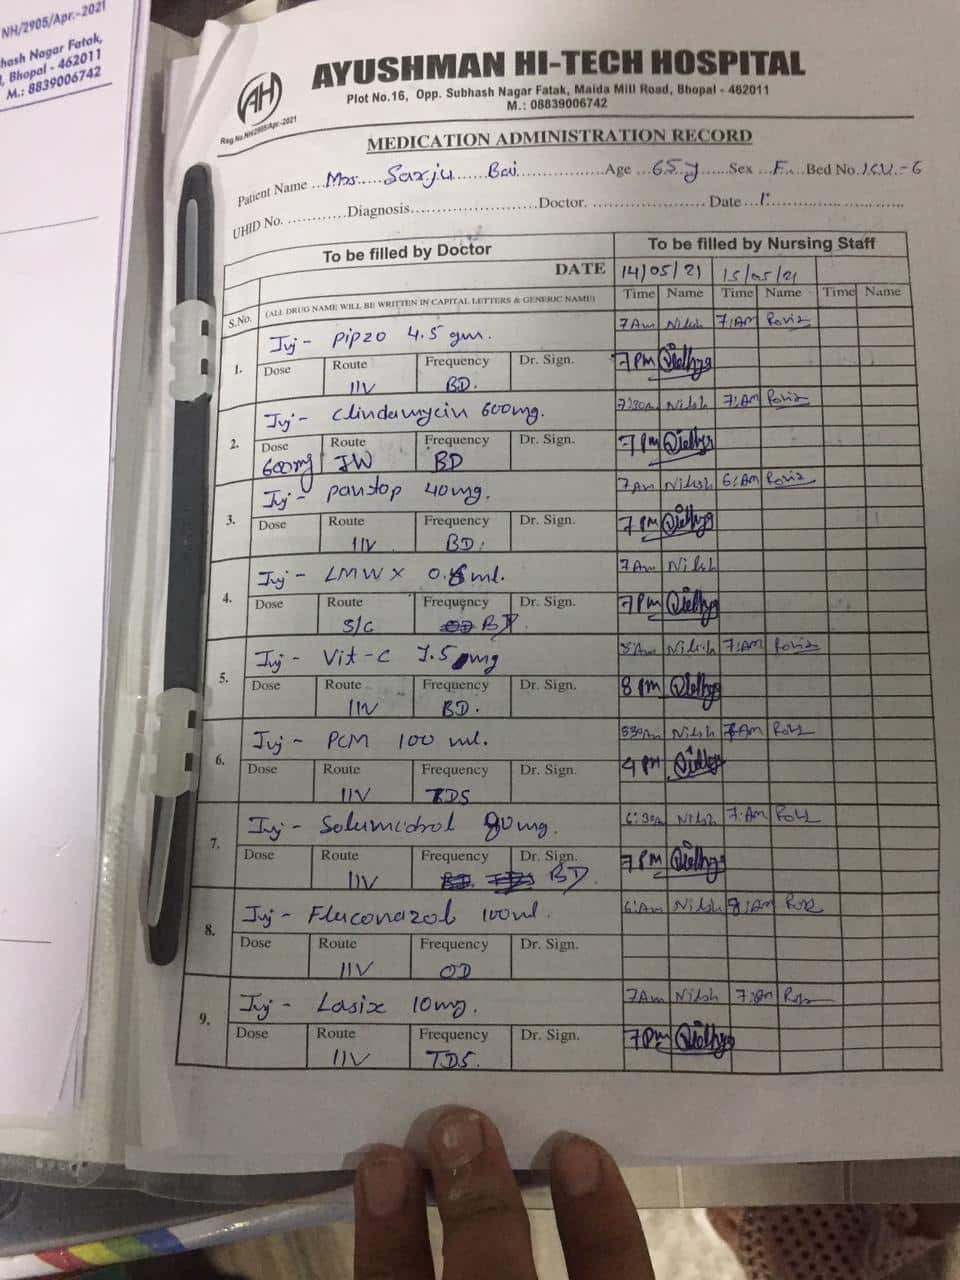 NH/2905/Apr.-2021
hash Nagar Fatak,
, Bhopal - 462011
M.: 8839006742
AH
Reg.No.NH/2905/Apr.-2021
AYUSHMAN HI-TECH HOSPITAL
Plot No.16, Opp. Subhash Nagar Fatak, Maida Mill Road, Bhopal - 462011
M.: 08839006742
MEDICATION ADMINISTRATION RECORD
Patient Name ...Mrs.....Sarju.....Bai...............Age ...65 y......Sex ...F....Bed No.I.C.U.-6
UHID No. ...............Diagnosis.....................Doctor. .....................Date.......................
To be filled by Doctor To be filled by Nursing Staff
DATE 14/05/21 15/05/21
S.No. (ALL DRUG NAME WILL BE WRITTEN IN CAPITAL LETTERS & GENERIC NAME) Time Name Time Name Time Name
1. Inj - Pipzo 4.5 gm. 7Am Nilesh 7:AM
Dose Route Frequency Dr. Sign. 7PM
IIV BD.
2. Inj - Clindamycin 600mg. 7:30Am Nilesh 7:AM
Dose Route Frequency Dr. Sign. 7PM
600mg IW BD
3. Inj - pantop 40mg. 7Am Nilesh 6:AM
Dose Route Frequency Dr. Sign. 7PM
IIV BD.
4. Inj - LMWX ml. 7Am Nilesh
Dose Route Frequency Dr. Sign. 7PM
S/C BD.
5. Inj - Vit-C 7.5 mg 8Am Nilesh 7:AM
Dose Route Frequency Dr. Sign. 8PM
IIV BD.
6. Inj - PCM 100 ml. 530Am Nilesh AM
Dose Route Frequency Dr. Sign. PM
IIV TDS
7. Inj - Solumedrol 80mg. 6:30A Nilesh 7:AM
Dose Route Frequency Dr. Sign. 7PM
IIV BD
8. Inj - Fluconazol 100ml. 6:Am Nilesh 8:AM
Dose Route Frequency Dr. Sign.
IIV OD
9. Inj - Lasix 10mg. 7Am Nilesh
Dose Route Frequency Dr. Sign. 7PM
IIV TDS.